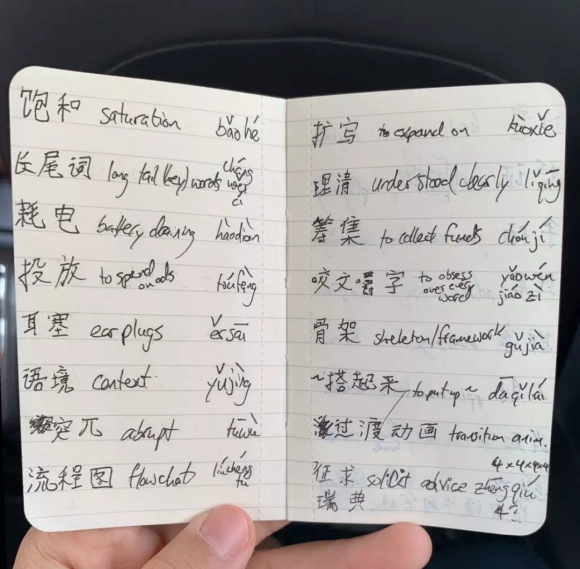 饱和 saturation bǎohé
长尾词 long tail (key) words cháng wěi cí
耗电 battery draining hàodiàn
投放 to spend on ads tóufàng
耳塞 earplugs ěrsāi
语境 context yǔjìng
突兀 abrupt tūwù
流程图 flowchat liúchéng tú
扩写 to expand on kuòxiě
理清 understood clearly lǐqīng
筹集 to collect funds chóují
咬文嚼字 to obsess over every word yǎowén jiáo zì
骨架 skeleton/framework gǔjià
~搭起来 to put up ~ dāqǐlái
过渡动画 transition anim.
征求 solicit advice zhēngqiú
瑞典